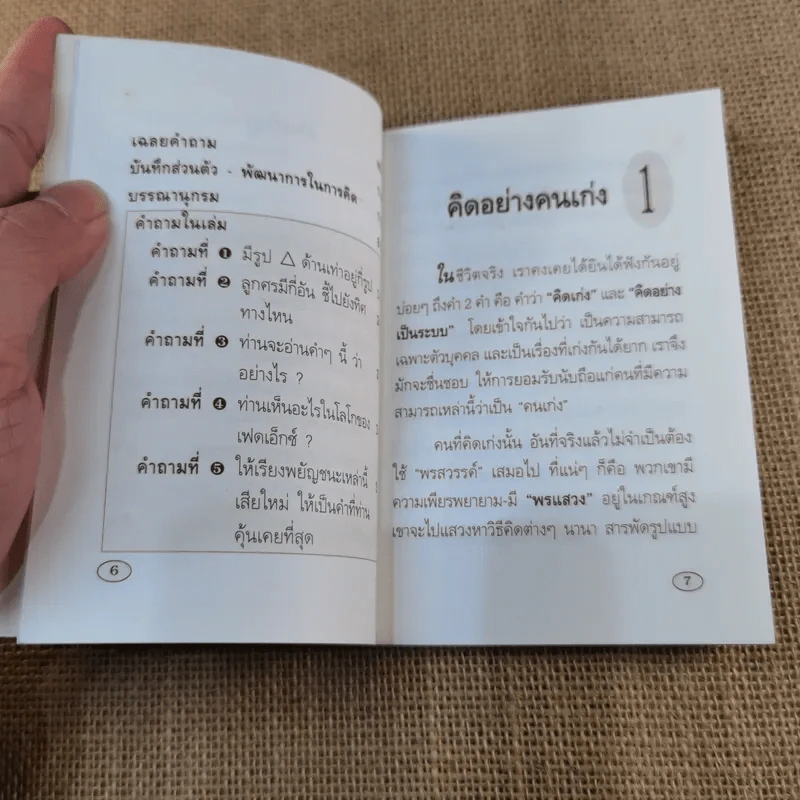 เฉลยคำถาม
บันทึกส่วนตัว - พัฒนาการในการคิด
บรรณานุกรม
คำถามในเล่ม
คำถามที่ ❶ มีรูป △ ด้านเท่าอยู่กี่รูป
คำถามที่ ❷ ลูกศรมีกี่อัน ชี้ไปยังทิศ
ทางไหน
คำถามที่ ❸ ท่านจะอ่านคำๆ นี้ ว่า
อย่างไร ?
คำถามที่ ❹ ท่านเห็นอะไรในโลโกของ
เฟดเอ็กซ์ ?
คำถามที่ ❺ ให้เรียงพยัญชนะเหล่านี้
เสียใหม่ ให้เป็นคำที่ท่าน
คุ้นเคยที่สุด
6
คิดอย่างคนเก่ง 1
ในชีวิตจริง เราคงเคยได้ยินได้ฟังกันอยู่
บ่อยๆ ถึงคำ 2 คำ คือ คำว่า "คิดเก่ง" และ "คิดอย่าง
เป็นระบบ" โดยเข้าใจกันไปว่า เป็นความสามารถ
เฉพาะตัวบุคคล และเป็นเรื่องที่เก่งกันได้ยาก เราจึง
มักจะชื่นชอบ ให้การยอมรับนับถือแก่คนที่มีความ
สามารถเหล่านี้ว่าเป็น "คนเก่ง"
คนที่คิดเก่งนั้น อันที่จริงแล้วไม่จำเป็นต้อง
ใช้ "พรสวรรค์" เสมอไป ที่แน่ๆ ก็คือ พวกเขามี
ความเพียรพยายาม-มี "พรแสวง" อยู่ในเกณฑ์สูง
เขาจะไปแสวงหาวิธีคิดต่างๆ นานา สารพัดรูปแบบ
7